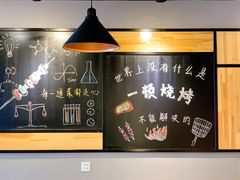 每一道菜都走心
世界上没有什么是
一顿烧烤
不能解决的